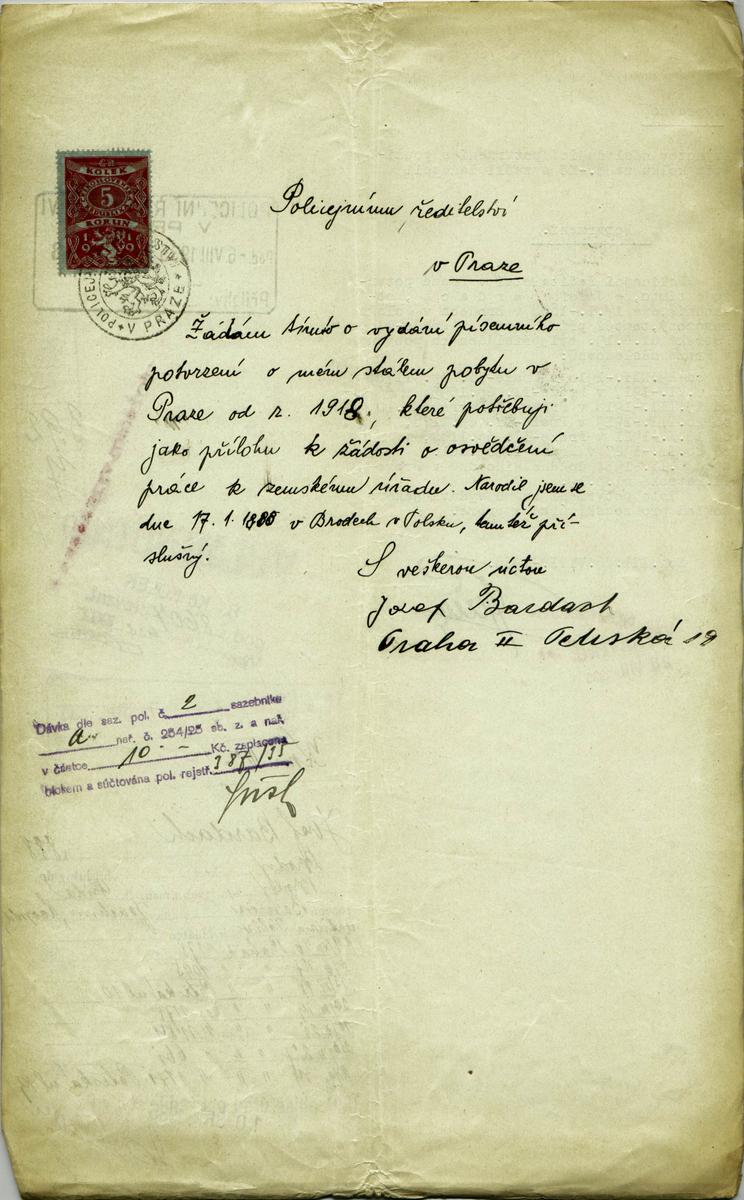 KOLEK
5
KORUN
1919
V PRAZE
Policejnímu ředitelství
v Praze
Žádám tímto o vydání písemního
potvrzení o mém stálem pobytu v
Praze od r. 1918, které potřebuji
jako přílohu k žádosti o osvědčení
práce k zemskému úřadu. Narodil jsem se
dne 17. 1. 1888 v Brodech v Polsku, tamtéž pří-
slušný.
S veškerou úctou
Josef Bardach
Praha II 19
Dávka dle saz. pol. č. 2 sazebníka
a. nař. č. 254/25 sb. z. a nař.
v částce 10.- Kč. zaplacena
blokem a súčtována pol. rejstř. 387/35